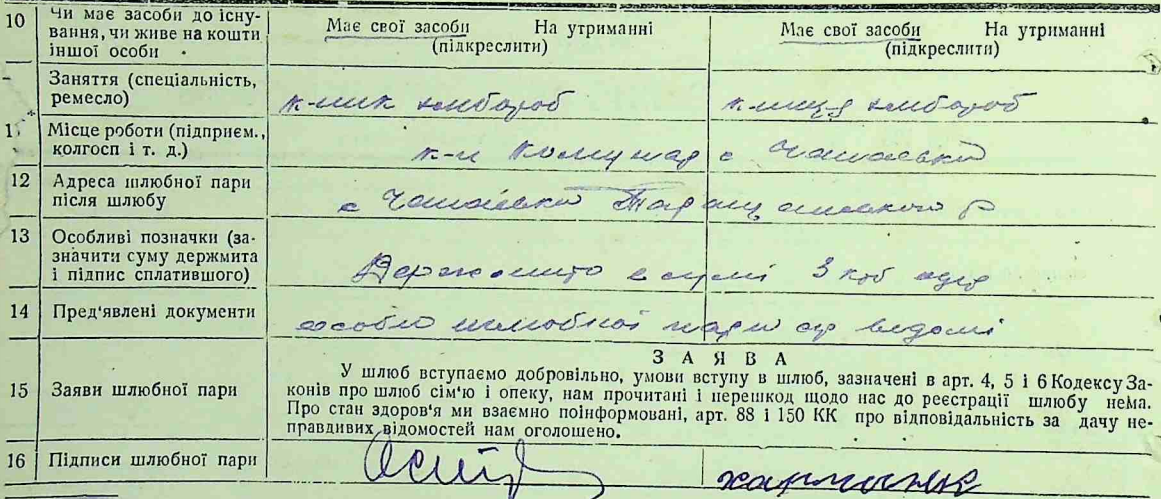 10 Чи має засоби до існу-
вання, чи живе на кошти
іншої особи
Має свої засоби На утриманні
(підкреслити)
Має свої засоби На утриманні
(підкреслити)
Заняття (спеціальність,
ремесло)
к-ник хлібороб
к-ниця хлібороб
Місце роботи (підприєм.,
колгосп і т. д.)
к-п Комунар с
12 Адреса шлюбної пари
після шлюбу
с
13 Особливі позначки (за-
значити суму держмита
і підпис сплатившого)
Держмито в сумі 3 крб
14 Пред'явлені документи
особи шлюбної пари відомі
15 Заяви шлюбної пари
ЗАЯВА
У шлюб вступаємо добровільно, умови вступу в шлюб, зазначені в арт. 4, 5 і 6 Кодексу За-
конів про шлюб сім'ю і опеку, нам прочитані і перешкод щодо нас до реєстрації шлюбу нема.
Про стан здоров'я ми взаємно поінформовані, арт. 88 і 150 КК про відповідальність за дачу не-
правдивих відомостей нам оголошено.
16 Підписи шлюбної пари